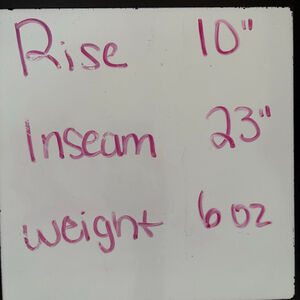 Rise 10"
Inseam 23"
weight 6 oz